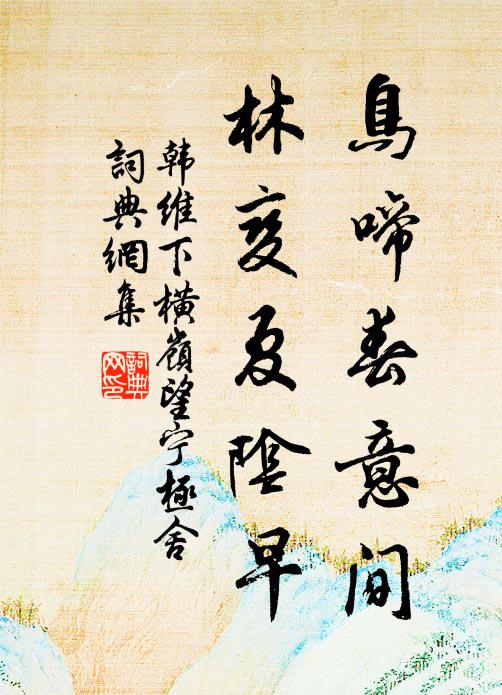 鳥啼春意間
林变夏陰早
韩维下横嶺望宁極舍
詞典網集
詞典网印